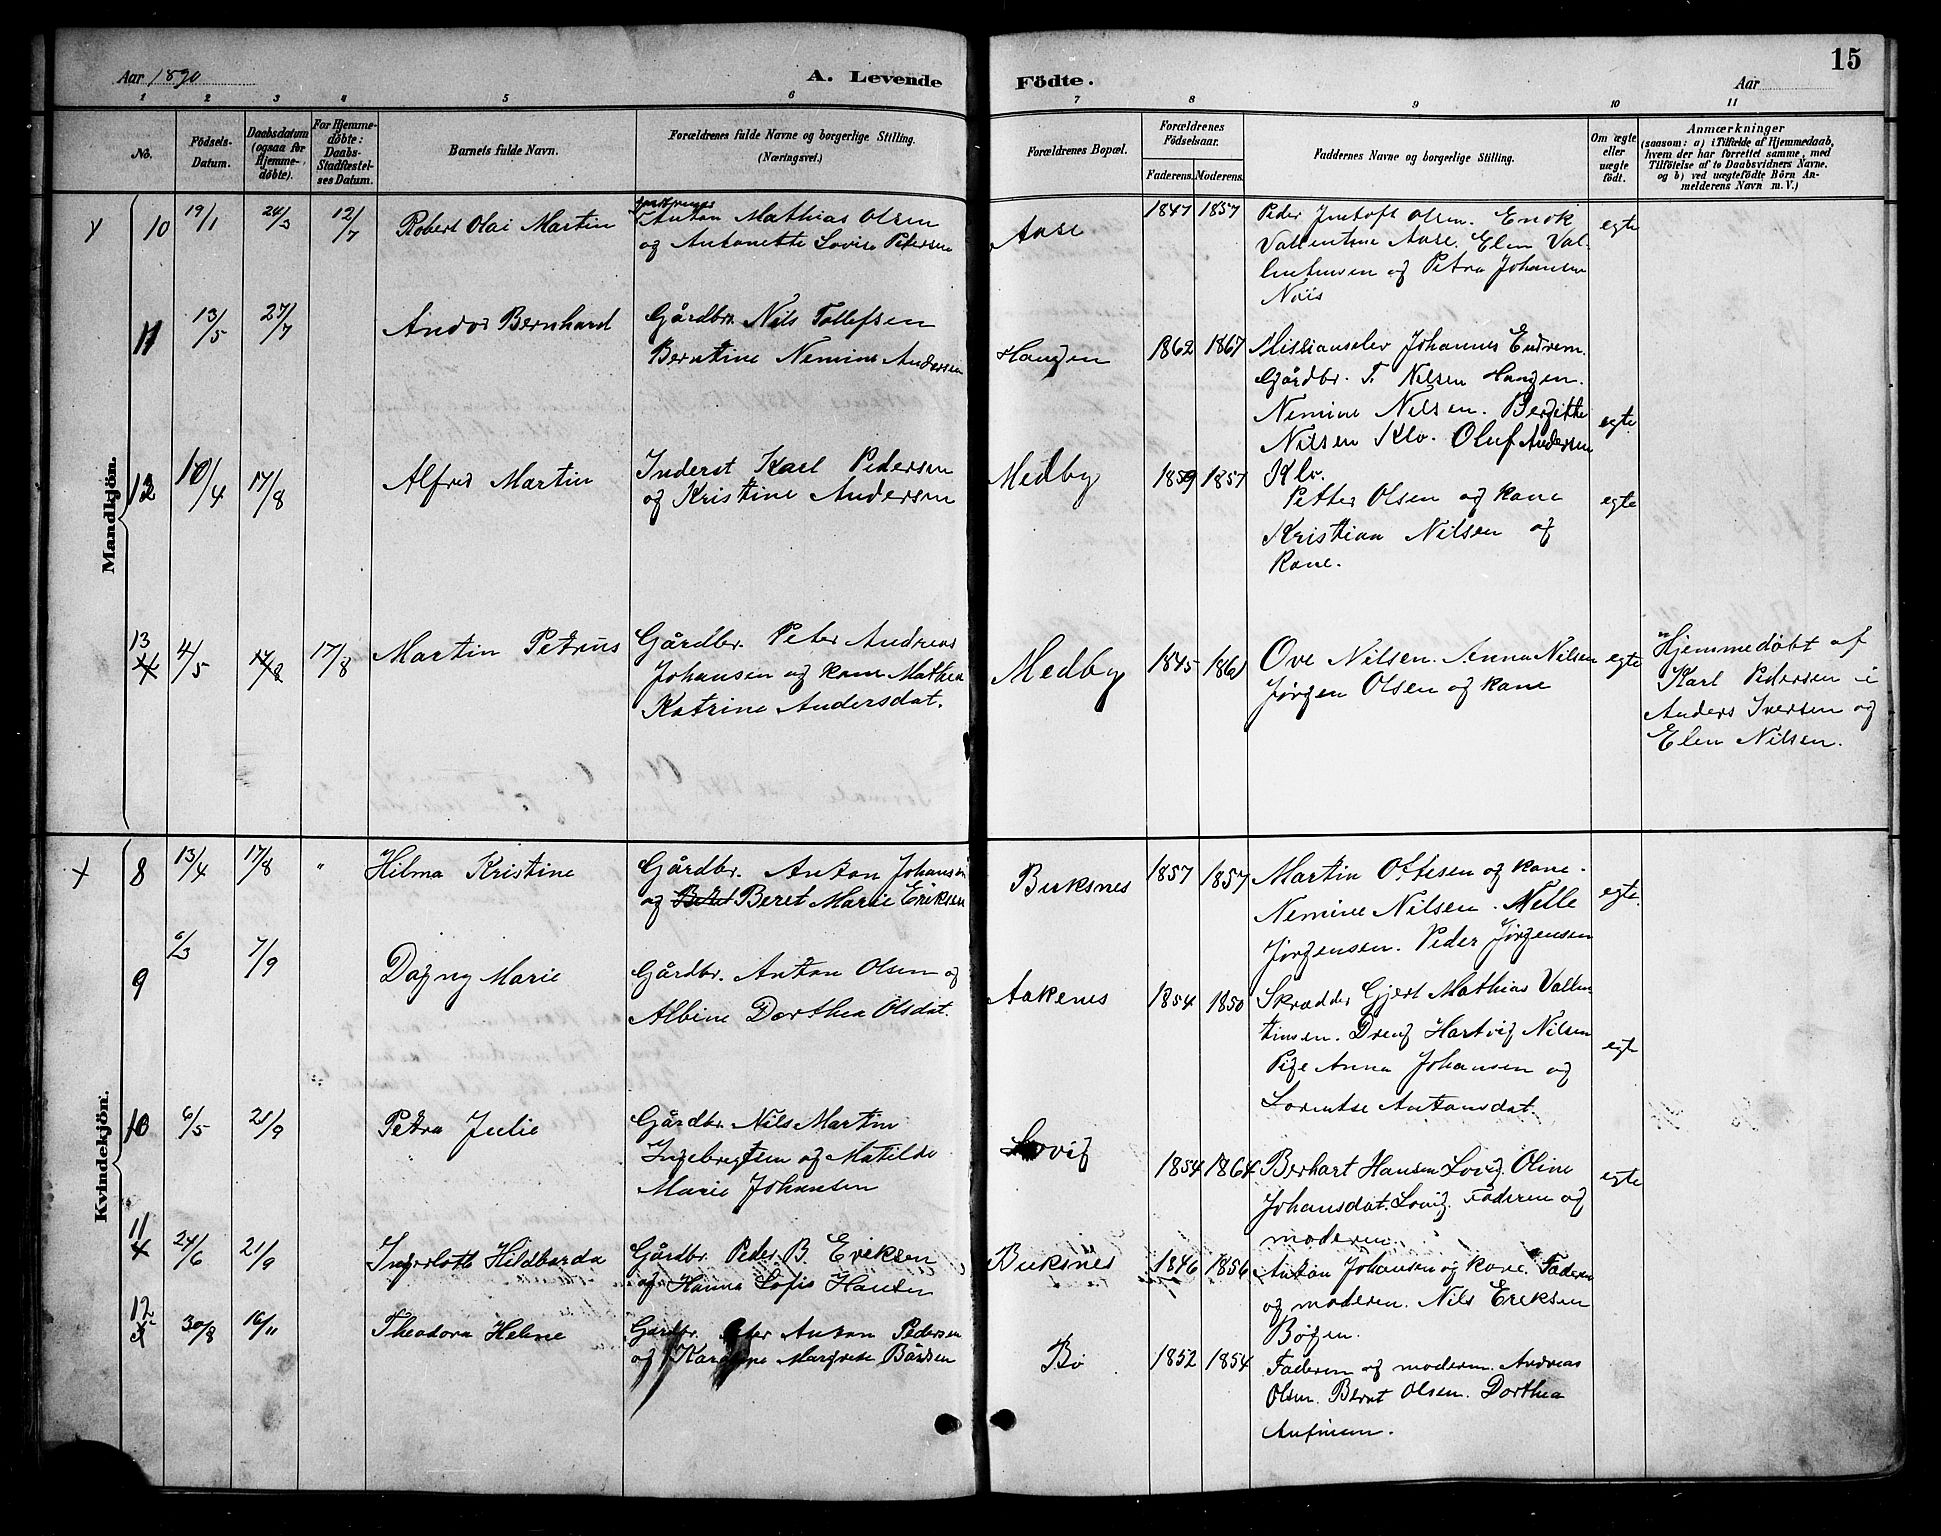 Aar 1890
A. Levende
Födte.
Aar
15
1 2 3 4 5 6 7 8 9 10 11
No.
Födsels-
Datum.
Daabsdatum
(ogsaa for
Hjemme-
döbte).
For Hjemme-
döbte:
Daabs-
Stadfæstel-
ses Datum.
Barnets fulde Navn.
Forældrenes fulde Navne og borgerlige Stilling.
(Næringsvei.)
Forældrenes Bopæl.
Forældrenes
Födselsaar.
Faderens. Moderens.
Faddernes Navne og borgerlige Stilling.
Om ægte
eller
uægte
födt.
Anmærkninger
(saasom: a) i Tilfælde af Hjemmedaab,
hvem der har forrettet samme, med
Tilföielse af to Daabsvidners Navne.
og b) ved uægtefödte Börn An-
melderens Navn m. V.)
Mandkjön.
10 19/1 24/3 12/7 Robert Olai Martin
Anton Mathias Olsen
og Antonette Lovise Petersen
Aase
1847 1857
Peder Olsen. Enok
Valentine Aase. Elen Val-
og Petra Johansen
Nøis
egte
11 13/5 27/7 Andor Bernhard
Gårdbr. Nils Tollefsen
Berntine Nemine Andersen
Haugen
1862 1867
Missionselev Johannes Endrem.
Gårdbr. T. Nilsen Haugen.
Nemine Nilsen. Bergitte
Nilsen Klo. Oluf Andersen
Klo.
egte
12 10/4 17/8 Alfred Martin
Inderst Karl Pedersen
og Kristine Andersen
Medby
1859 1857
Petter Olsen og kone
Kristian Nilsen og
kone.
egte
13 4/5 17/8 17/8 Martin Petrus
Gårdbr. Peter Andreas
Johansen og kone Mathea
Katrine Andersdat.
Medby
1845 1861
Ove Nilsen. Anna Nilsen
Jørgen Olsen og kone
egte
Hjemmedøbt af
Karl Pedersen i
Anders Iversen og
Elen Nilsen.
Kvindekjön.
8 13/4 17/8 " Hilma Kristine
Gårdbr. Anton Johansen
og Beret Marie Eriksen
Buksnes
1857 1857
Martin Ottesen og kone.
Nemine Nilsen. Nelle
Jørgensen. Peder Jørgensen
egte.
9 6/3 7/9 Dagny Marie
Gårdbr. Anton Olsen og
Albine Dorthea Olsdat.
Aakenes
1854 1850
Skrædder Gjert Mathias Vallen-
tinsen. Dreng Hartvig Nilsen
Pige Anna Johansen og
Lorentse Antonsdat.
egte
10 6/5 21/9 Petra Julie
Gårdbr. Nils Martin
Ingebregtsen og Matilde
Marie Johansen
Lovig
1854 1864
Berhart Hansen Lovig. Oline
Johansdat. Lovig. Faderen og
moderen.
egte
11 24/6 21/9 Ingerlotte Hildborda
Gårdbr. Peder B. Eriksen
og Hanna Sofie Hansen
Buksnes
1846 1856
Anton Johansen og kone. Faderen
og moderen. Nils Eriksen
Bøgen.
12 30/8 16/11 Theodora Helene
Gårdbr. Peter Anton Pedersen
og Karoline Margrete Bårdsen
Bø
1852 1854
Faderen og moderen. Andreas
Olsen. Bernt Olsen. Dorthea
Anfinsen.